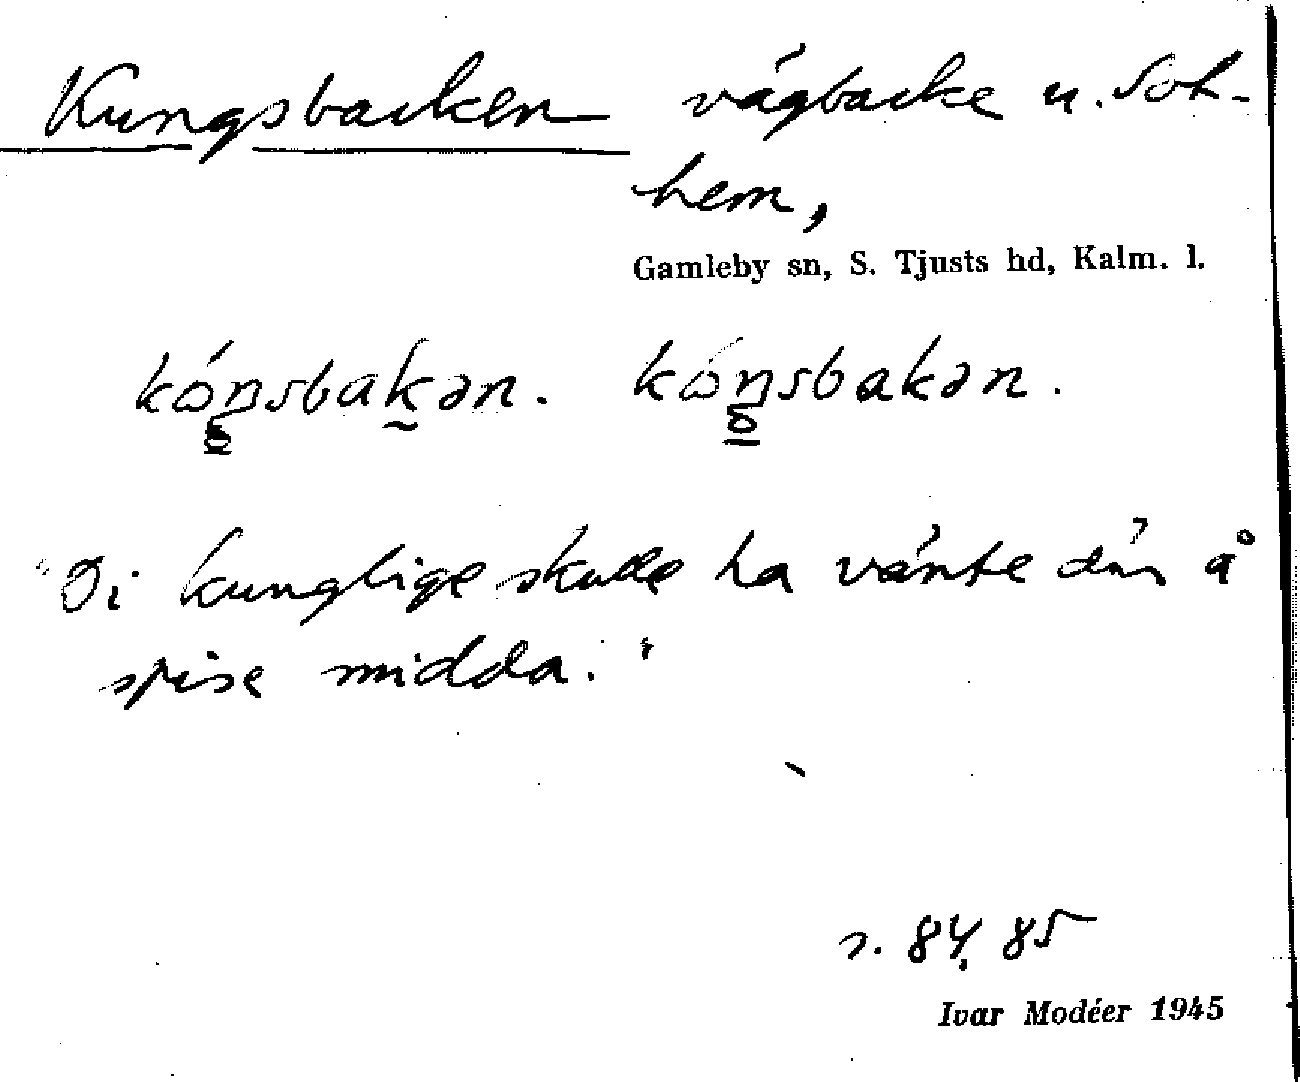 Kungsbacken vägbacke u. Sot-
hem,
Gamleby sn, S. Tjusts hd, Kalm. l.
kóŋsbakən. kóŋsbakən.
"Di kunglige skulle ha vänte där å
spise midda."
s. 84, 85
Ivar Modéer 1945